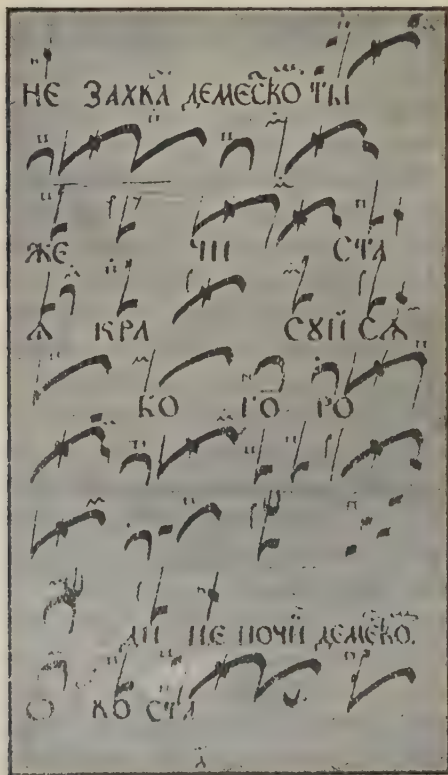 НЕ ЗАХКА ДЕМЕСКО ТЫ
ЖЕ ЧИ СТА
Ѧ КРА СꙊЙ СѦ
КО ГО РО
ДИ НЕ ПОЧИ ДЕМЕКО.
О КО СТА